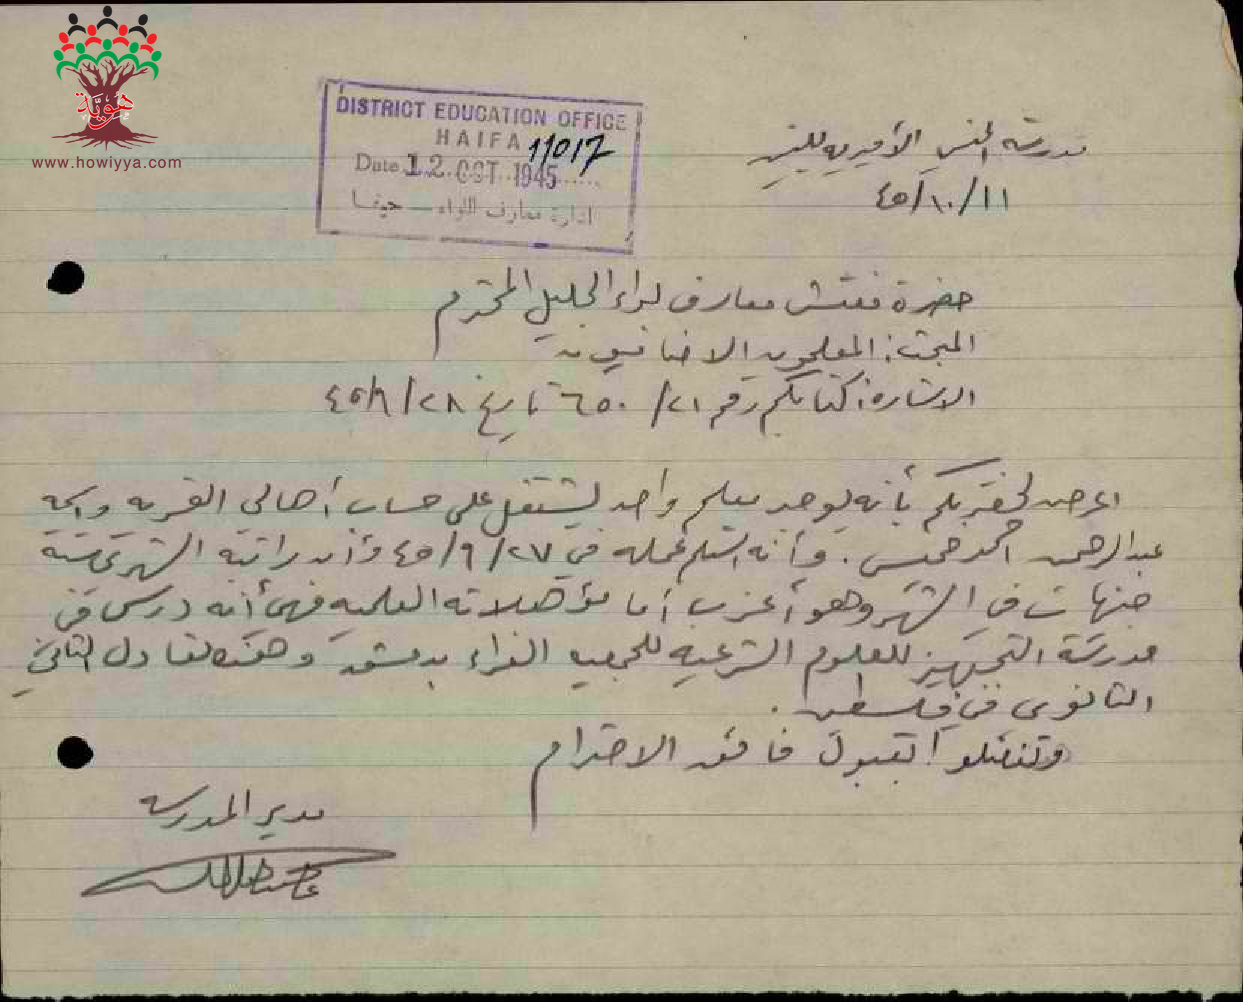 هوية
www.howiyya.com
DISTRICT EDUCATION OFFICE
HAIFA
11017
Date 12 OCT 1945
ادارة معارف اللواء — حيفا
مدرسة الأميرية للبنين
٤٥/١٠/١١
حضرة مفتش معارف لواء الجليل المحترم
المبحث: المعلمون الاضافيون
الاشارة: كتابكم رقم ٢١/ ٦٥٠ تاريخ ٤٥/٩/٢٨
اعرض لحضرتكم بأنه يوجد معلم واحد يشتغل على حساب أهالي القرية واسمه
عبد الرحمن احمد خميس . وأنه استلم عمله في ٤٥/٩/٢٧ وأن راتبه الشهري ستة
جنيهات في الشهر وهو أعزب أما مؤهلاته العلمية فهي أنه درس في
مدرسة التجهيز للعلوم الشرعية للجمعية الغراء بدمشق وهذه تعادل الثاني
الثانوي في فلسطين .
وتفضلوا بقبول فائق الاحترام
مدير المدرسة